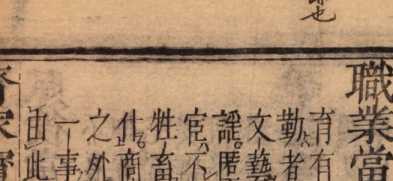 也
職業當
育有
勤者
文藝
謡匿
宦不
牲畜
什商
之外
一事
由此